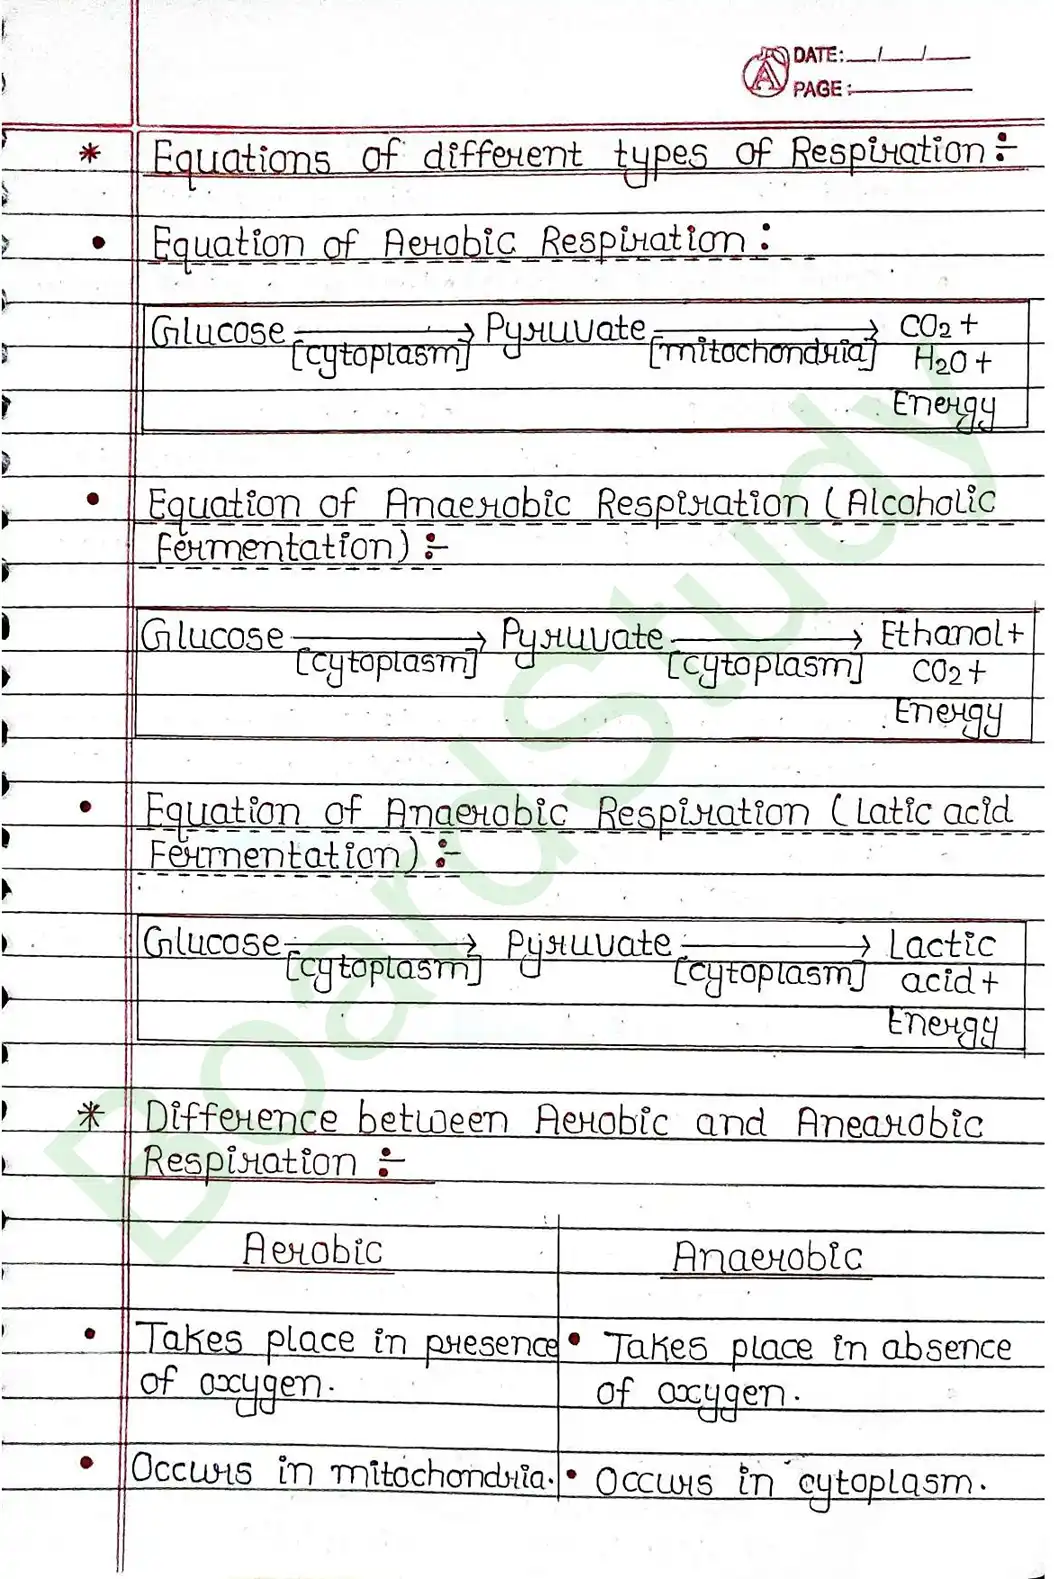 DATE: __/__/__
PAGE: ______
* Equations of different types of Respiration :-
• Equation of Aerobic Respiration :
Glucose → Pyruvate → CO₂ +
[cytoplasm] [mitochondria] H₂O +
Energy
• Equation of Anaerobic Respiration (Alcoholic
Fermentation) :-
Glucose → Pyruvate → Ethanol +
[cytoplasm] [cytoplasm] CO₂ +
Energy
• Equation of Anaerobic Respiration (Latic acid
Fermentation) :-
Glucose → Pyruvate → Lactic
[cytoplasm] [cytoplasm] acid +
Energy
* Difference between Aerobic and Anearobic
Respiration :-
Aerobic Anaerobic
• Takes place in presence • Takes place in absence
of oxygen. of oxygen.
• Occurs in mitochondria. • Occurs in cytoplasm.
BoardStudy